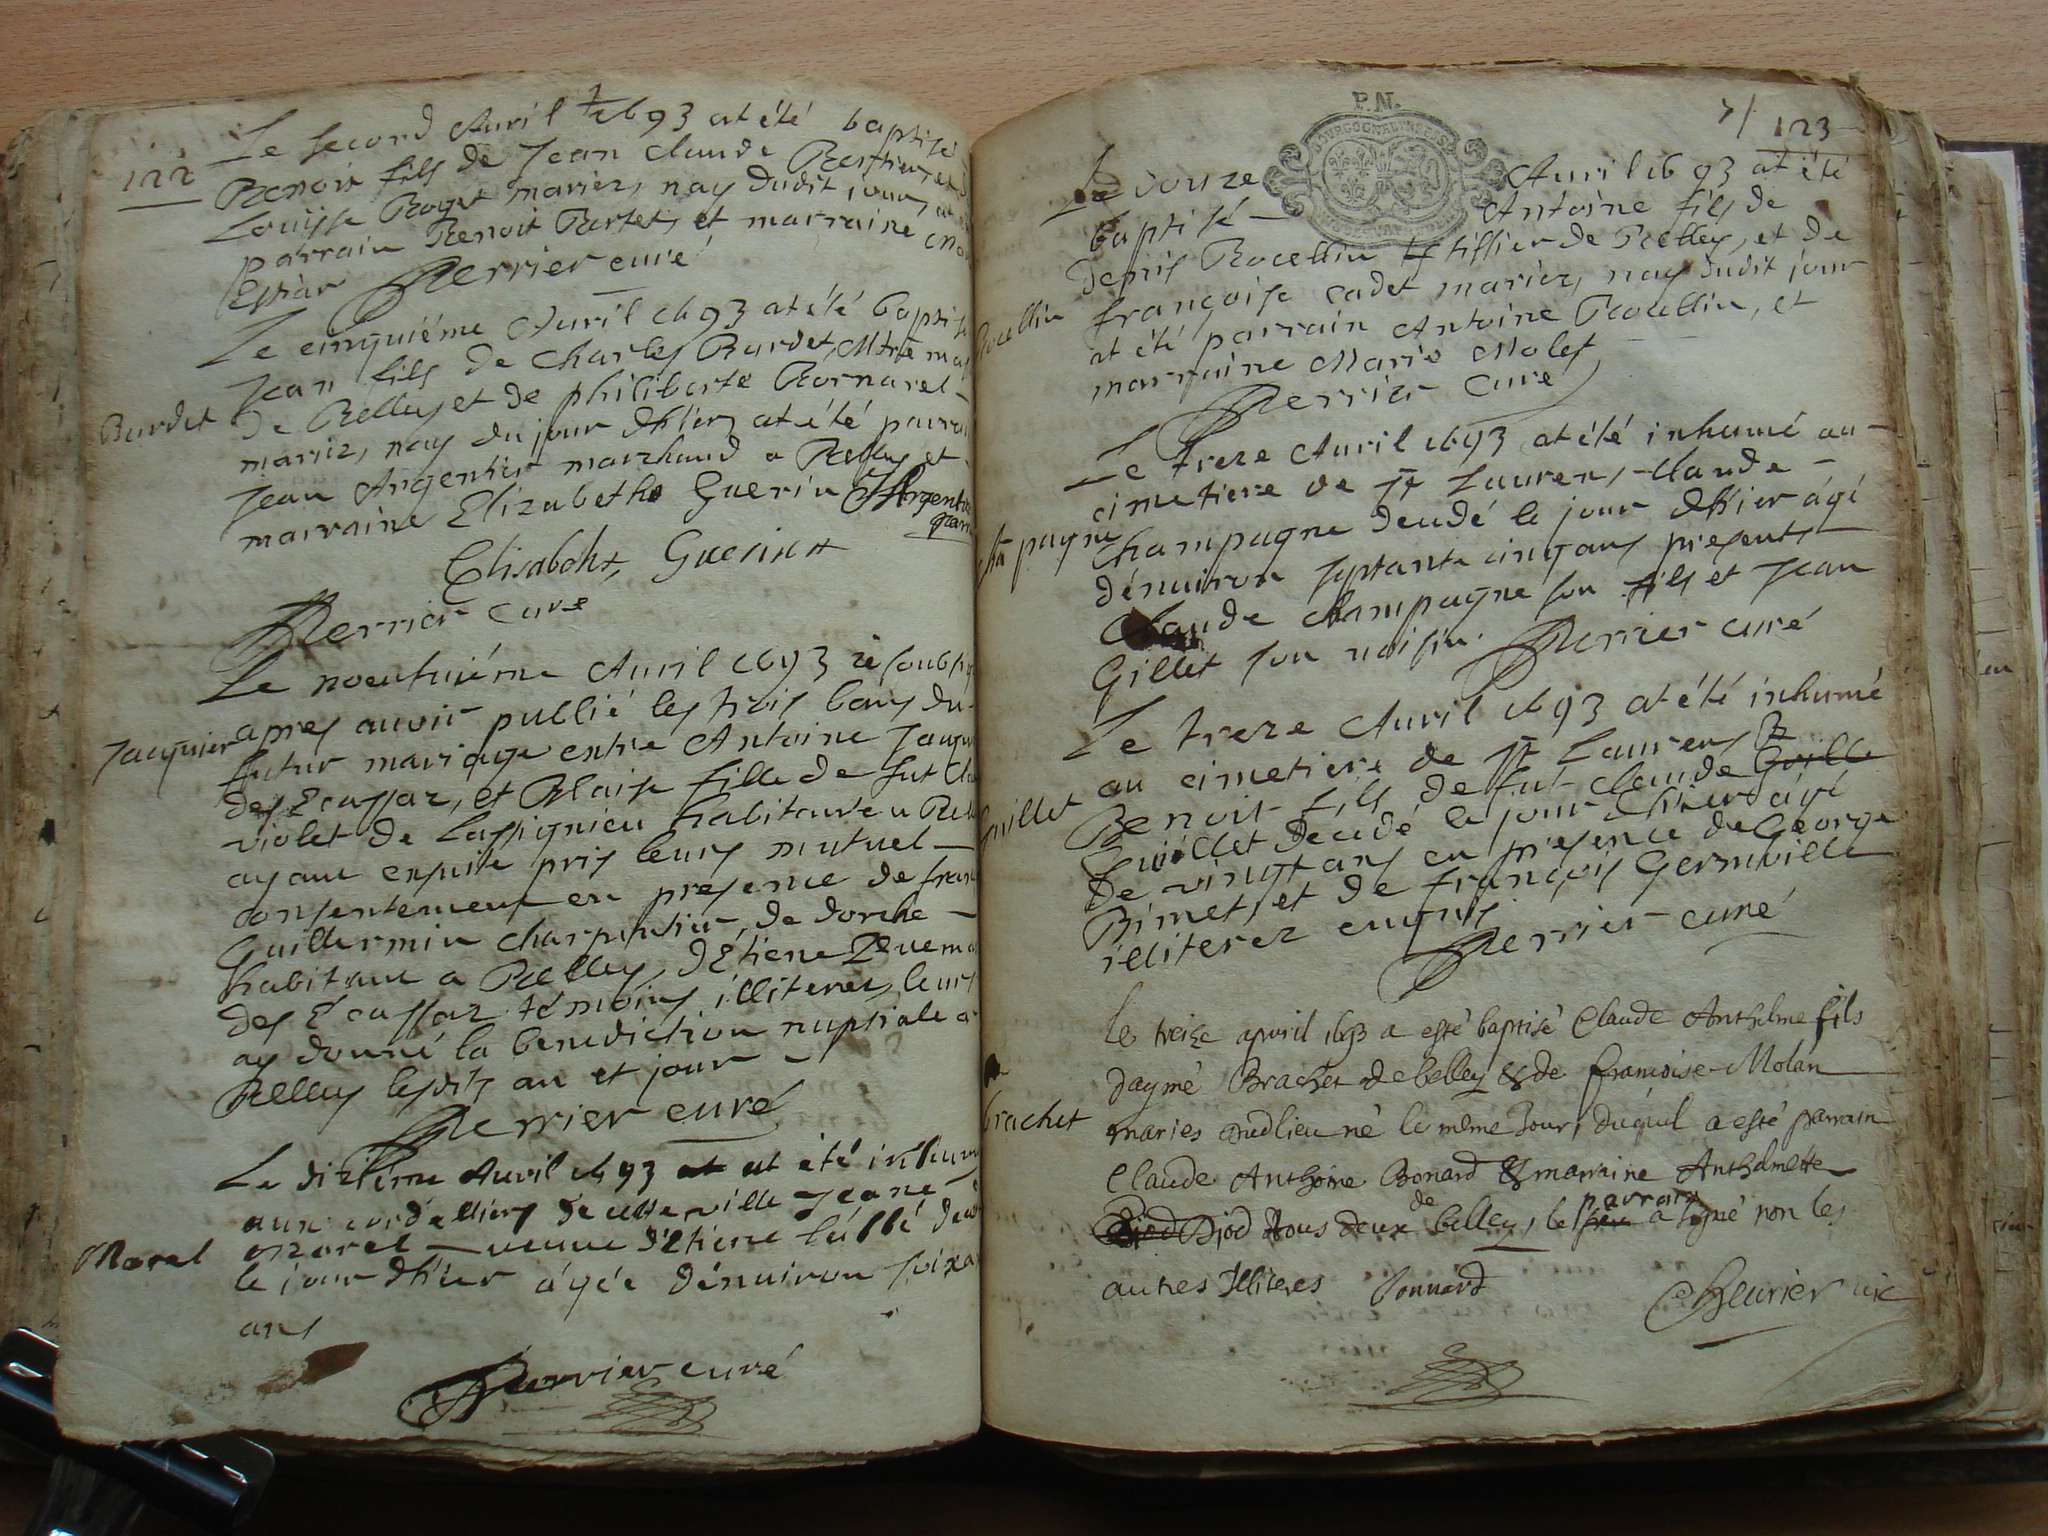 122
Le second Auril 1693 at été baptisé
Benoit fils de Jean Claude
Louÿse Roget mariez, nay dudit jour, at
parrain Benoit et marraine
Perrier curé
Le cinquiéme Auril 1693 at été bapti
Jean fils de Charles Burdet, Mtre
Burdet
de Belley et de philiberte Bornarel
mariez, nay du jour d'hier, at été parra
Jean Argentier marchand a Belley et
marraine Elizabethe Guerin JArgentie
Elisabeht Guerin
Perrier curé
Le noeufuiéme Auril 1693 ie soubsig
apres auoir publié les trois bans du
Jacquier
futur mariage entre Antoine Jacqu
des Ecassaz, et Blaise fille de fut Cla
violet de Lassignieu habitante a Bel
ayant ensuite pris leurs mutuel
consentement en presence de fran
Guillermin charpentier, de dorche
habitant a Belley, d'Etiene
des Ecassaz témoins illiterez, leurs
ay donné la benediction nuptiale a
Belley lesdits an et jour
Perrier curé
Le diziéme Auril 1693 at été inhum
aux cordelliers de cette ville Jeane
Morel
morel veuue d'Etiene
le jour d'hier âgée d'enuiron soixa
ans
Perrier curé
P.N.
7/ 123
Le douze Auril 1693 at été
baptisé Antoine fils de
denis Rocellin tissier de Belley, et de
françoise cadet mariez, nay dudit jour
Rocellin
at été parrain Antoine Rocellin, et
marraine Marie Molet
Perrier curé
Le treze Auril 1693 at été inhumé au
cimetiere de st Laurens, Claude
Champagne
Champagne decedé le jour d'hier âgé
d'enuiron septante cinq ans presents
Claude champagne son fils et Jean
Gillet son uoisin. Perrier curé
Le treze Auril 1693 at été inhumé
au cimetiere de st Laurens
Benoit fils de fut claude Guille
Guillet
Guillet decedé le jour d'hier âgé
de vingt ans en presence de George
Binet, et de françois Germville
illiterez enquis
Perrier curé
le treize apvril 1693 a esté baptisé Claude Anthelme fils
daymé Brachet de belley & de francoise Molan
brachet
maries audlieu né le même Jour, duquel a esté parrain
Claude Anthoine Bonard & marraine Anthelmette
Djod Djod tous deux de belley, le parrain a signé non les
autres Illiteres Bonnard
vic